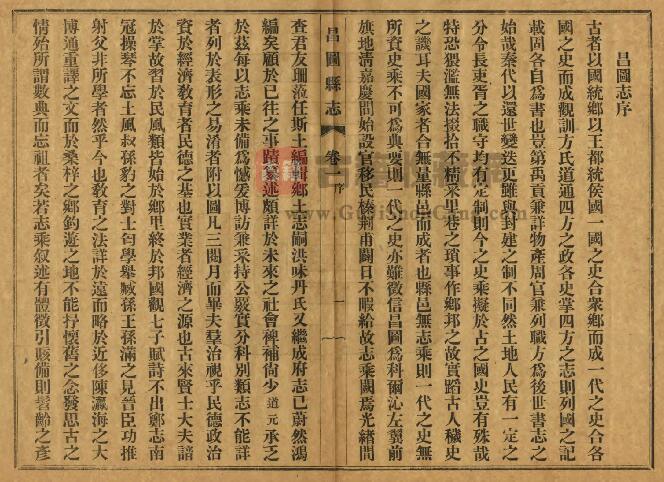 昌圖志序
古者以國統鄉以王都統侯國一國之史合衆鄉而成一代之史合各
國之史而成觀訓方氏道通四方之政各史掌四方之志則列國之記
載固各自爲書也豈第禹貢兼詳物產周官兼列職方爲後世書志之
始哉秦代以還世變迭更雖與封建之制不同然土地人民有一定之
分令長吏胥之職守均有定制則今之史乘擬於古之國史豈有殊哉
特恐猥濫無法掇拾不精采里巷之瑣事作鄉邦之故實蹈古人穢史
之譏耳夫國家者合無量縣邑而成者也縣邑無志乘則一代之史無
所資史乘不可爲典要則一代之史亦難徵信昌圖爲科爾沁左翼前
旗地淸嘉慶間始設官移民榛荆甫闢日不暇給故志乘闕焉光緖間
昌圖縣志 卷一 序 一
查君友珊蒞任斯土編輯鄉土志嗣洪味丹氏又繼成府志已蔚然鴻
編矣顧於已往之事蹟纂述頗詳於未來之社會裨補尙少道元承乏
於茲每以志乘未備爲憾爰博訪兼采持公覈實分科別類志不能詳
者列於表形之易淆者附以圖凡三閱月而畢夫羣治視乎民德政治
資於經濟敎育者民德之基也實業者經濟之源也古來賢士大夫諳
於掌故習於民風類皆始於鄉里終於邦國觀七子賦詩不出鄭志南
冠操琴不忘土風叔孫豹之對士匄學舉臧孫王孫滿之見晉臣功推
射父非所學者然乎今也敎育之法詳於遠而略於近侈陳瀛海之大
博通重譯之文而於桑梓之鄉釣遊之地不能抒懷舊之念發思古之
情殆所謂數典而忘祖者矣若志乘叙述有體徵引賅備則髫齡之彥